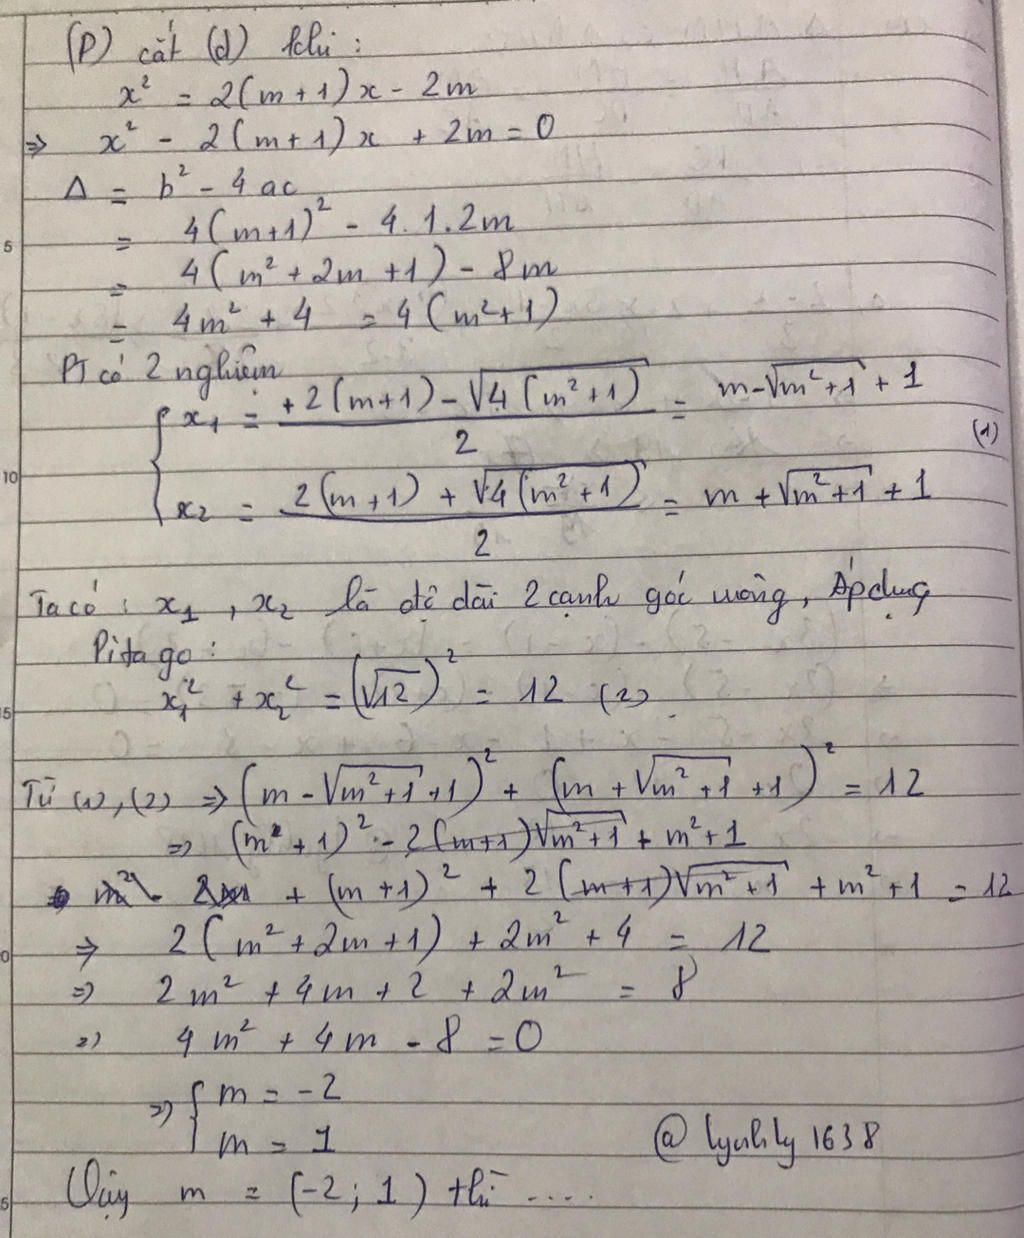 (P) cắt (d) khi :
x² = 2(m+1)x - 2m
=> x² - 2(m+1)x + 2m = 0
Δ = b² - 4ac
= 4(m+1)² - 4.1.2m
= 4(m² + 2m + 1) - 8m
= 4m² + 4 = 4(m²+1)
PT có 2 nghiệm
{ x₁ = (+2(m+1) - √(4(m²+1)))/2 = m - √(m²+1) + 1
(1)
x₂ = (2(m+1) + √(4(m²+1)))/2 = m + √(m²+1) + 1
Ta có : x₁, x₂ là độ dài 2 cạnh góc vuông, Áp dụng
Pitago :
x₁² + x₂² = (√12)² = 12 (2)
Từ (1), (2) => (m - √(m²+1) + 1)² + (m + √(m²+1) + 1)² = 12
=> (m + 1)² - 2(m+1)√(m²+1) + m² + 1
+ (m+1)² + 2(m+1)√(m²+1) + m² + 1 = 12
=> 2(m² + 2m + 1) + 2m² + 4 = 12
=> 2m² + 4m + 2 + 2m² = 8
=> 4m² + 4m - 8 = 0
=> { m = -2
m = 1
@lyuhly1638
Vậy m = (-2; 1) thì ....